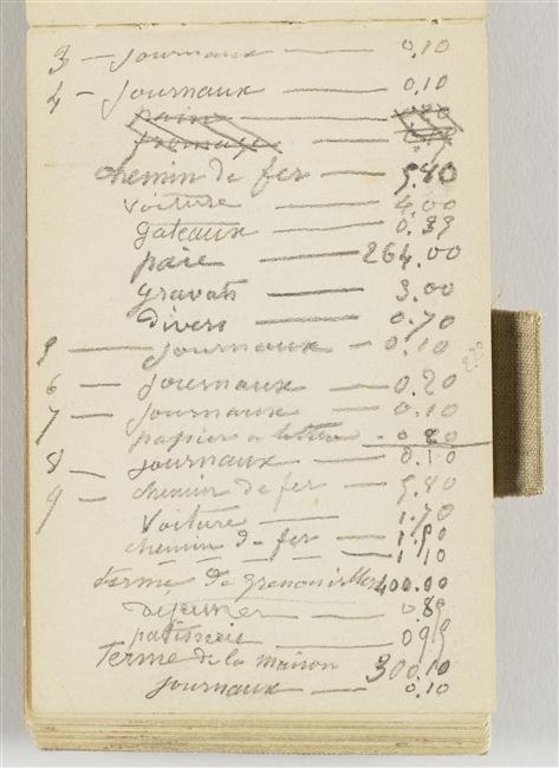 3 — Journaux — 0.10
4 — Journaux — 0.10
pains —
fromage —
chemin de fer — 5.80
voiture — 4.00
gateaux — 0.35
paie — 264.00
gravats — 3.00
divers — 0.70
5 — Journaux — 0.10
6 — Journaux — 0.20
7 — Journaux — 0.10
papier a lettre - 0.80
8 — journaux — 0.10
9 — chemin de fer — 5.80
voiture — 1.70
chemin de fer —
— — — — 1.10
terme de 400.00
dejeuner —
patisserie —
Terme de la maison 300.10
journaux — 0.10